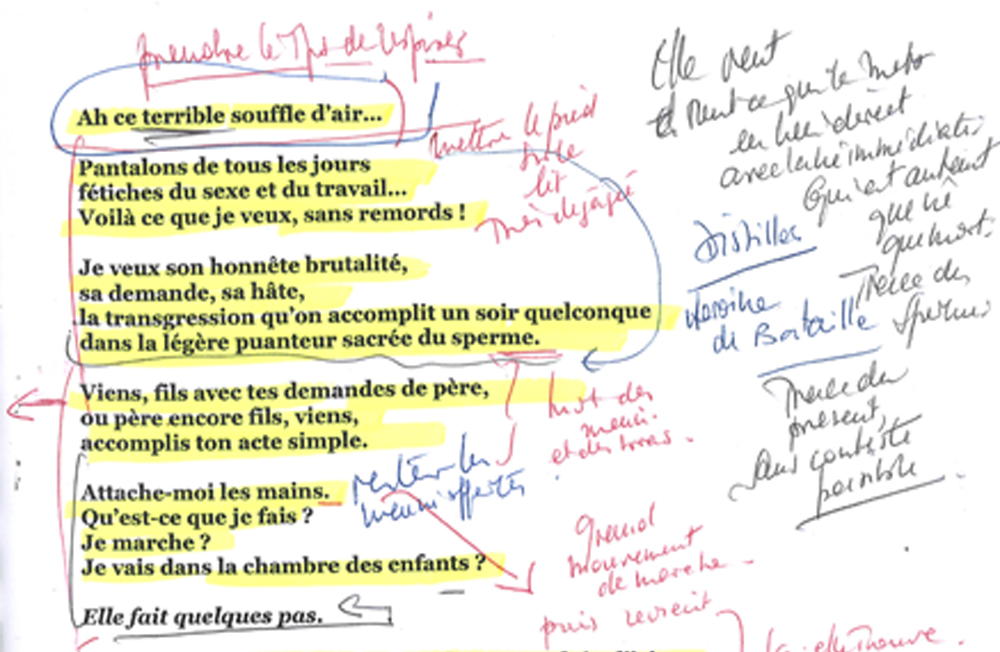 prendre le Tps de respirer
Ah ce terrible souffle d'air...
mettre le pied
sur le
lit
Pantalons de tous les jours
fétiches du sexe et du travail...
Voilà ce que je veux, sans remords !
Je veux son honnête brutalité,
sa demande, sa hâte,
la transgression qu'on accomplit un soir quelconque
dans la légère puanteur sacrée du sperme.
Viens, fils avec tes demandes de père,
ou père encore fils, viens,
accomplis ton acte simple.
Attache-moi les mains.
Qu'est-ce que je fais ?
Je marche ?
Je vais dans la chambre des enfants ?
Elle fait quelques pas.
Elle veut
en lien direct
avec
qui est autant
que
que mort.
Distiller
Héroïne
de Bataille
Trace du
sperme
Trace du
présent,
sans
possible
Mot des
mains
et des bras.
les
mains offertes
Grand
mouvement
de marche
puis revient
elle trouve.